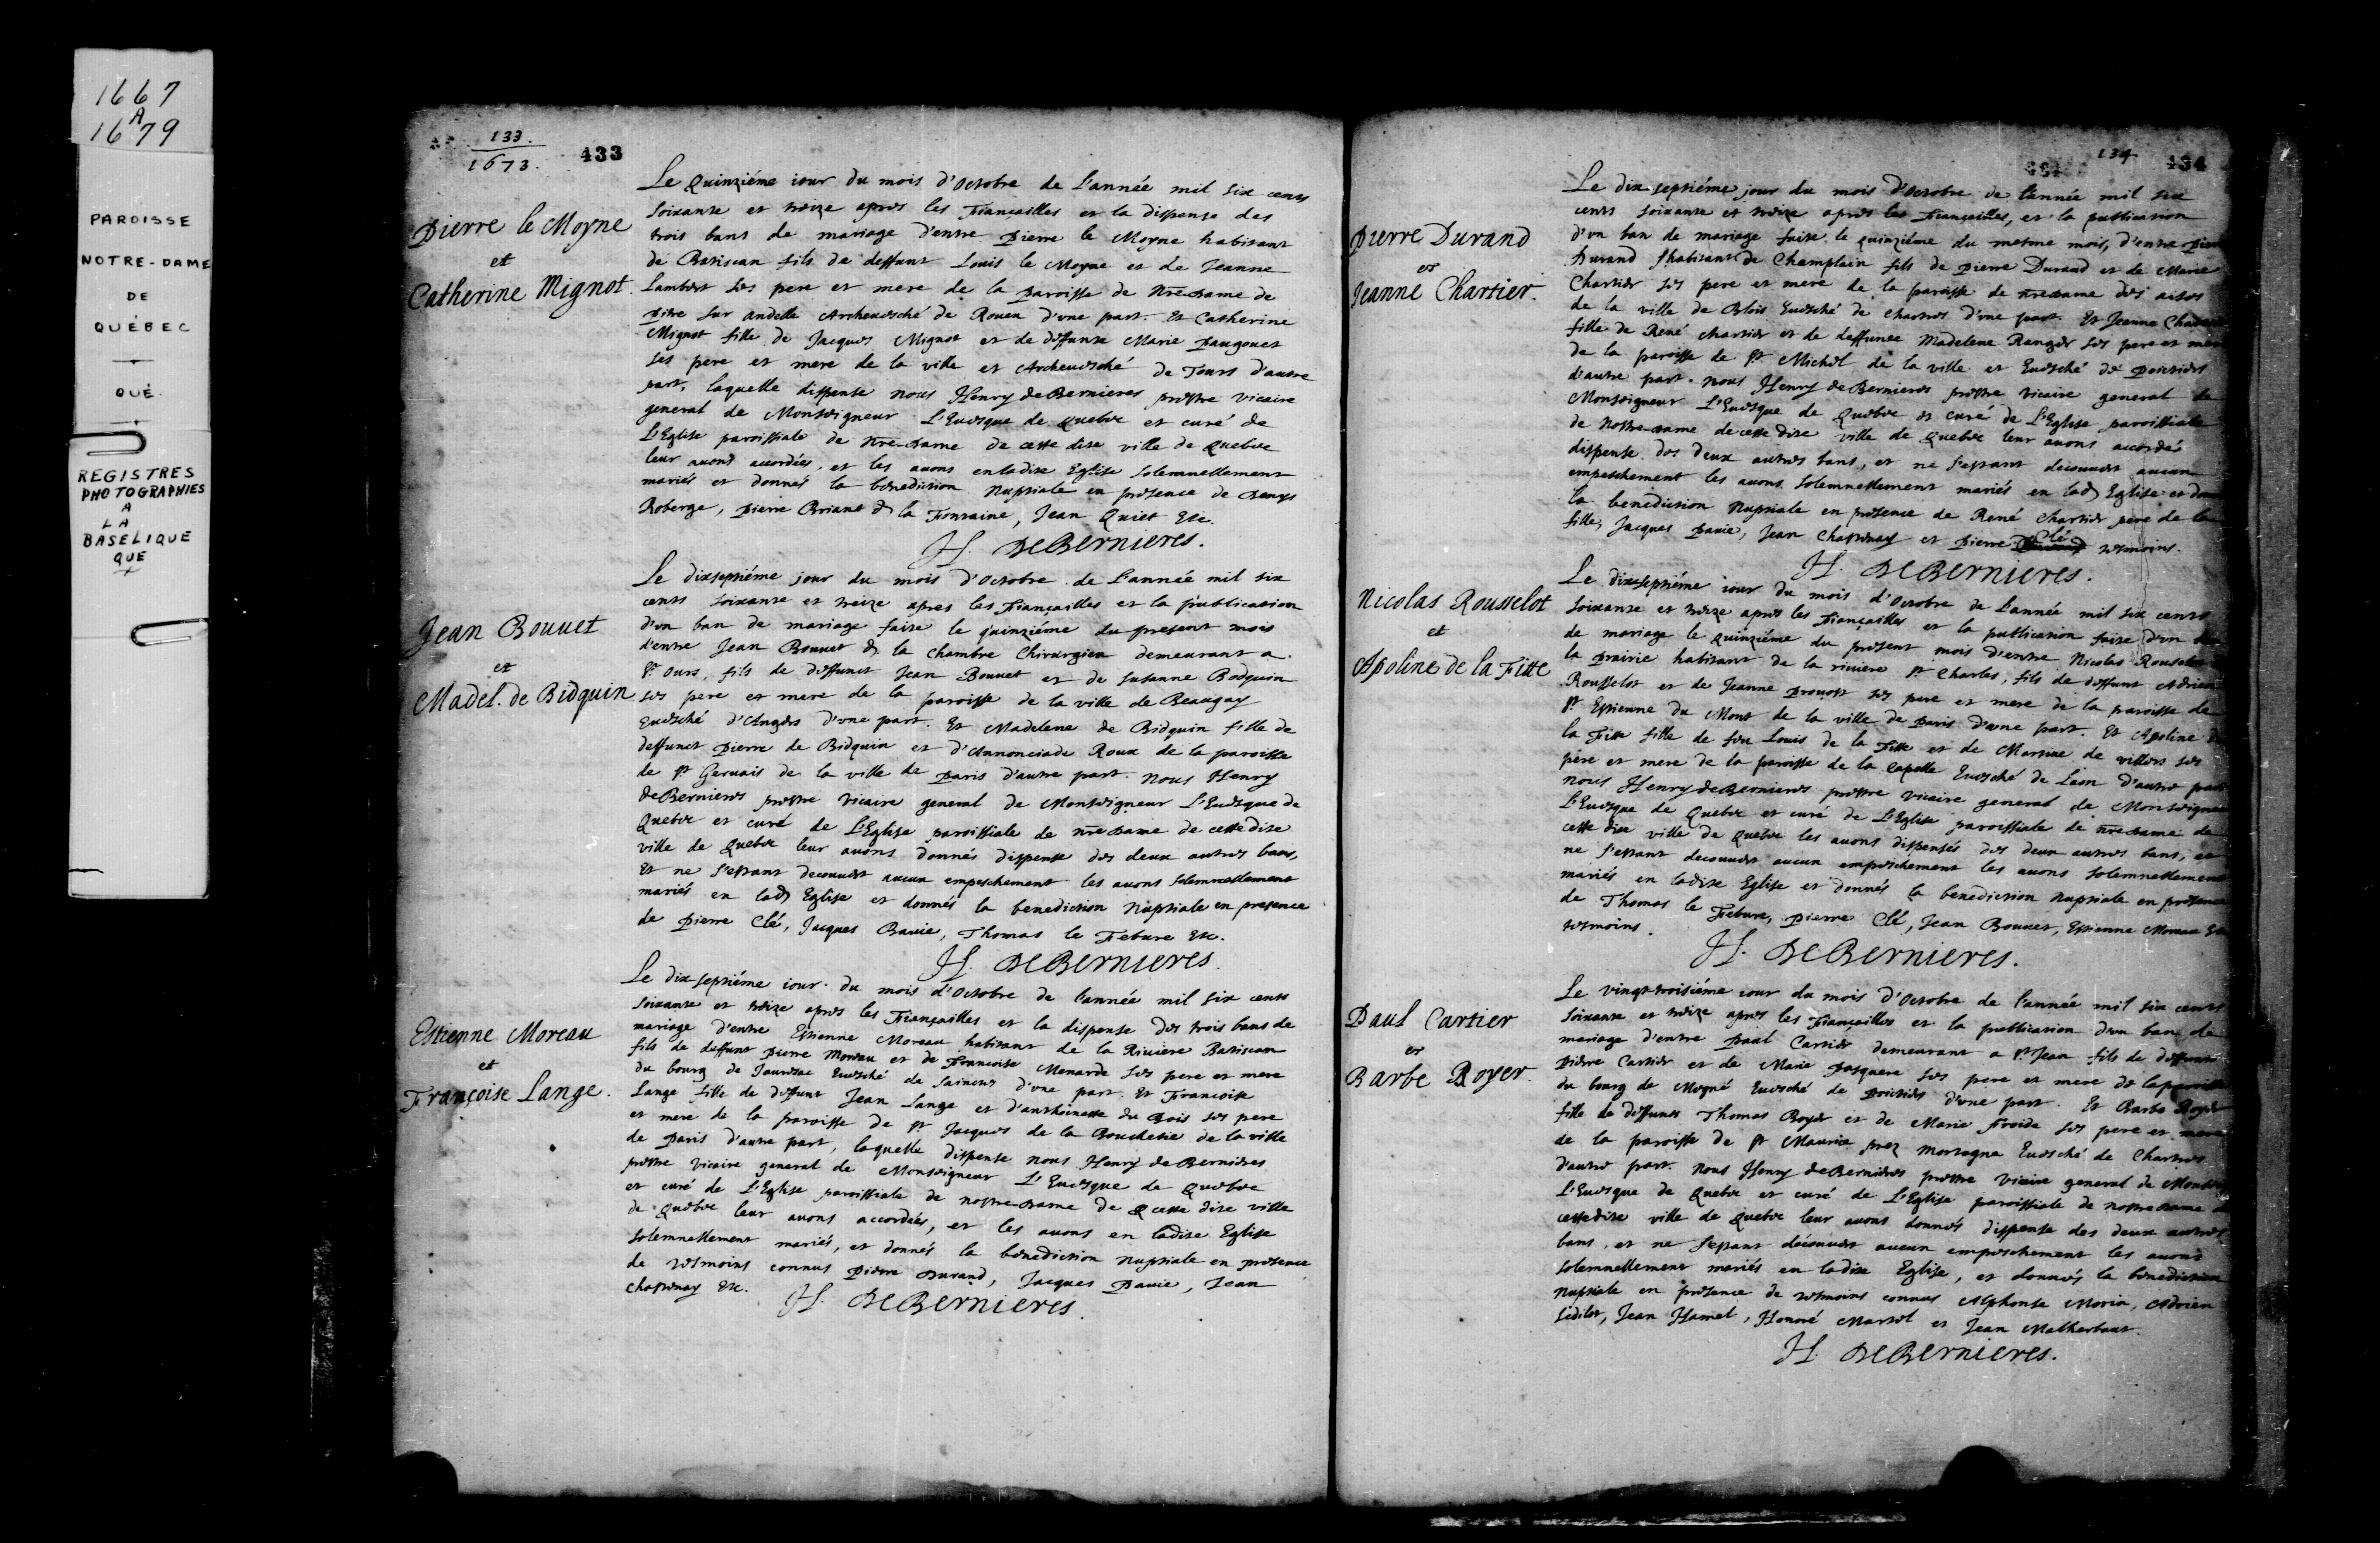 1667
A
1679
PAROISSE
NOTRE-DAME
DE
QUÉBEC
QUÉ.
REGISTRES
PHOTOGRAPHIES
A
LA
BASELIQUE
QUE
133.
1673.
433
Pierre le Moyne
et
Catherine Mignot.
Le Quinziéme iour du mois d'Octobre de l'année mil six cents
soixante et treize apres les Fiançailles et la dispense des
trois bans de mariage d'entre Pierre le Moyne habitant
de Batiscan fils de deffunt Louis le Moyne et de Jeanne
Lambert ses pere et mere de la Paroisse de Nre-Dame de
Pitre sur andelle Archeuesché de Rouen d'une part. Et Catherine
Mignot fille de Jacques Mignot et de deffunte Marie Daugouet
ses pere et mere de la ville et Archeuesché de Tours d'autre
part, laquelle dispense nous Henry de Bernieres prestre vicaire
general de Monseigneur L'Euesque de Quebec et curé de
L'Eglise paroissiale de Nre-Dame de cette dite ville de Quebec
leur auons accordées, et les auons enladite Eglise solemnellement
mariés et donnés la benediction Nuptiale en presence de Denys
Roberge, Pierre Briant de la Fontaine, Jean Quiet Etc.
H. DEBERNIERES.
Jean Bouuet
et
Madel. de Bidquin
Le dixseptiéme jour du mois d'Octobre de L'année mil six
cents soixante et treize apres les Fiançailles et la publication
d'un ban de mariage faite le quinziéme du present mois
d'entre Jean Bouuet de la Chambre Chirurgien demeurant a
St Ours, fils de deffunct Jean Bouuet et de Susanne Bodquin
ses pere et mere de la paroisse de la ville de Beaugay
Euesché d'Angers d'une part. Et Madelene de Bidquin fille de
deffunct Pierre de Bidquin et d'Annonciade Roux de la paroisse
de St Geruais de la ville de Paris d'autre part. Nous Henry
de Bernieres prestre vicaire general de Monseigneur L'Euesque de
Quebec et curé de L'Eglise paroissiale de nre Dame de cette dite
ville de Quebec leur auons donnés dispense des deux autres bans,
Et ne s'estant decouuert aucun empeschement les auons solemnellement
mariés en lad Eglise et donnés la benediction Nuptiale en presence
de Pierre Clé, Jacques Bauie, Thomas le Febure Etc.
H. DEBERNIERES.
Estienne Moreau
et
Françoise Lange.
Le dix septiéme iour du mois d'Octobre de l'année mil six cents
soixante et treize apres les Fiançailles et la dispense des trois bans de
mariage d'entre Estienne Moreau habitant de la Riuiere Batiscan
fils de deffunt Pierre Moreau et de Françoise Menarde ses pere et mere
du bourg de Euesché de Sainctes d'une part. Et Françoise
Lange fille de deffunt Jean Lange et d'anthoinette du Bois ses pere
et mere de la paroisse de St Jacques de la Boucherie de la ville
de Paris d'autre part, laquelle dispense nous Henry de Bernieres
prestre vicaire general de Monseigneur L'Euesque de Quebec
et curé de L'Eglise paroissiale de nostre-Dame de cette dite ville
de Quebec leur auons accordées, et les auons en ladite Eglise
solemnellement mariés, et donnés la benediction nuptiale en presence
de tesmoins connus Pierre Durand, Jacques Dauie, Jean
Chastenay Etc.
H. DEBERNIERES.
134
434
Pierre Durand
et
Jeanne Chartier.
Le dix septiéme jour du mois d'Octobre de l'année mil six
cents soixante et treize apres les Fiançailles, et la publication
d'un ban de mariage faite le quinziéme du mesme mois, d'entre
Durand habitant de Champlain fils de Pierre Durand et de Marie
Chartier ses pere et mere de la paroisse de nre dame des aides
de la ville de Blois Euesché de Chartres d'une part. Et Jeanne
fille de René chartier et de deffunte Madelene Ranger ses pere et mere
de la paroisse de St Michel de la ville et Euesché de Poictiers
d'autre part. nous Henry de Bernieres prestre vicaire general de
Monseigneur L'Euesque de Quebec et curé de L'Eglise paroissiale
de Nostre-Dame de cette dite ville de Quebec leur auons accordés
dispense des deux autres bans, et ne s'estant decouuert aucun
empeschement les auons solemnellement mariés en lad Eglise et
la benediction Nuptiale en presence de René Chartier pere de la
fille, Jacques Dauie, Jean Chastenay et Pierre Clé tesmoins.
H. DEBERNIERES.
Nicolas Rousselot
et
Apoline de la Fitte
Le dixseptiéme iour du mois d'Octobre de L'année mil six cents
soixante et treize apres les Fiançailles et la publication faite d'un
de mariage le quinziéme du present mois d'entre Nicolas Rousselot
la Prairie habitant de la riuiere St Charles, fils de deffunt Adrien
Rousselot et de Jeanne Prouost ses pere et mere de la paroisse de
St Estienne du Mont de la ville de Paris d'une part. Et Apoline
la Fitte fille de feu Louis de la Fitte et de Martine de villers ses
pere et mere de la paroisse de la Capelle Euesché de Laon d'autre part
nous Henry de Bernieres prestre vicaire general de Monseigneur
L'Euesque de Quebec et curé de L'Eglise paroissiale de nre Dame de
cette dite ville de Quebec les auons dispensés des deux autres bans, et
ne s'estant decouuert aucun empeschement les auons solemnellement
mariés en ladite Eglise et donnés la benediction nuptiale en presence
de Thomas le Febure, Pierre Clé, Jean Bouuet, Estienne Moreau
tesmoins.
H. DEBERNIERES.
Paul Cartier
et
Barbe Royer.
Le vingt-troisiéme iour du mois d'Octobre de l'année mil six cents
soixante et treize apres les Fiançailles et la publication d'un ban de
mariage d'entre Paul Cartier demeurant a St Jean fils de deffunt
Pierre Cartier et de Marie ses pere et mere de la paroisse
du bourg de Mogné Euesché de Poictiers d'une part. Et Barbe Royer
fille de deffunct Thomas Royer et de Marie Froide ses pere et mere
de la paroisse de St Maurice prez mortagne Euesché de Chartres
d'autre part. Nous Henry de Bernieres prestre vicaire general de
L'Euesque de Quebec et curé de L'Eglise paroissiale de nostre Dame
cette dite ville de Quebec leur auons donnés dispense des deux autres
bans, et ne s'estant decouuert aucun empeschement les auons
solemnellement mariés en ladite Eglise, et donnés la benediction
nuptiale en presence de tesmoins connus Alphonse Morin, Adrien
Sedilot, Jean Hamel, Honoré Martel et Jean Matherbaut.
H. DEBERNIERES.